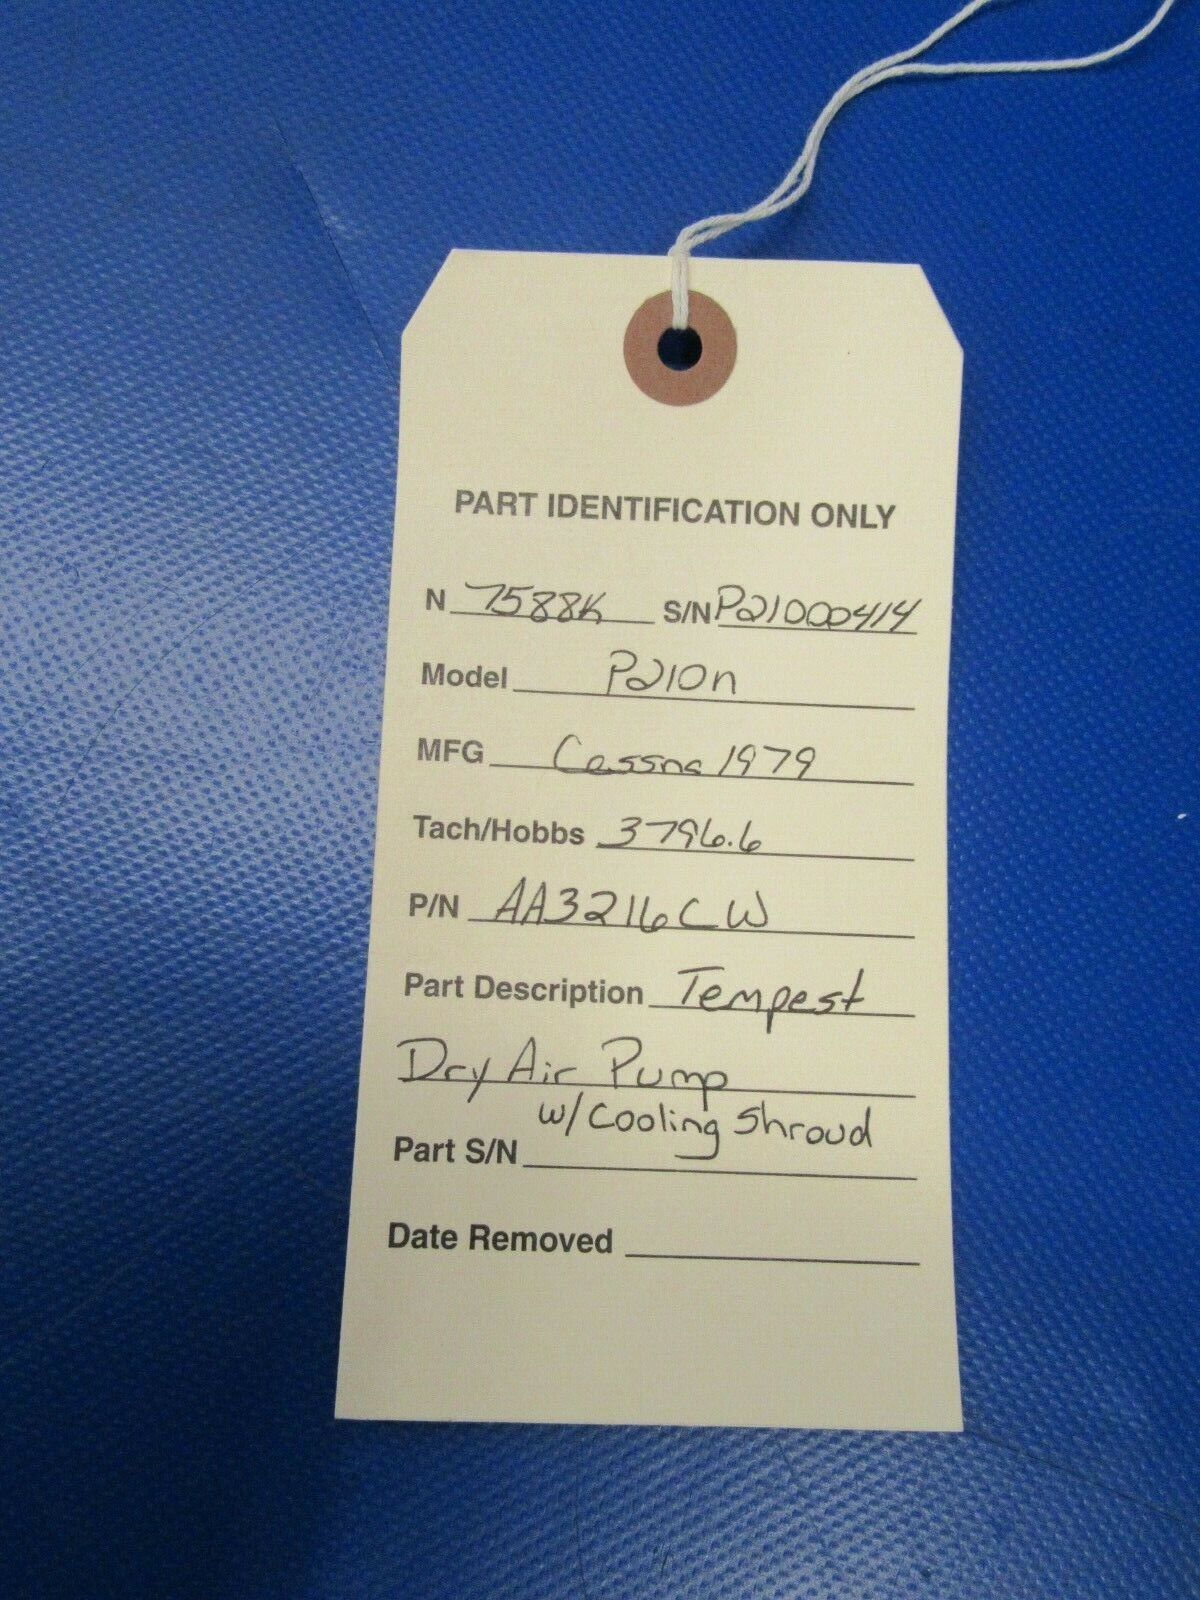 PART IDENTIFICATION ONLY
N 7588K S/N P21000414
Model P210n
MFG Cessna 1979
Tach/Hobbs 3796.6
P/N AA3216CW
Part Description Tempest
Dry Air Pump
w/ Cooling Shroud
Part S/N
Date Removed